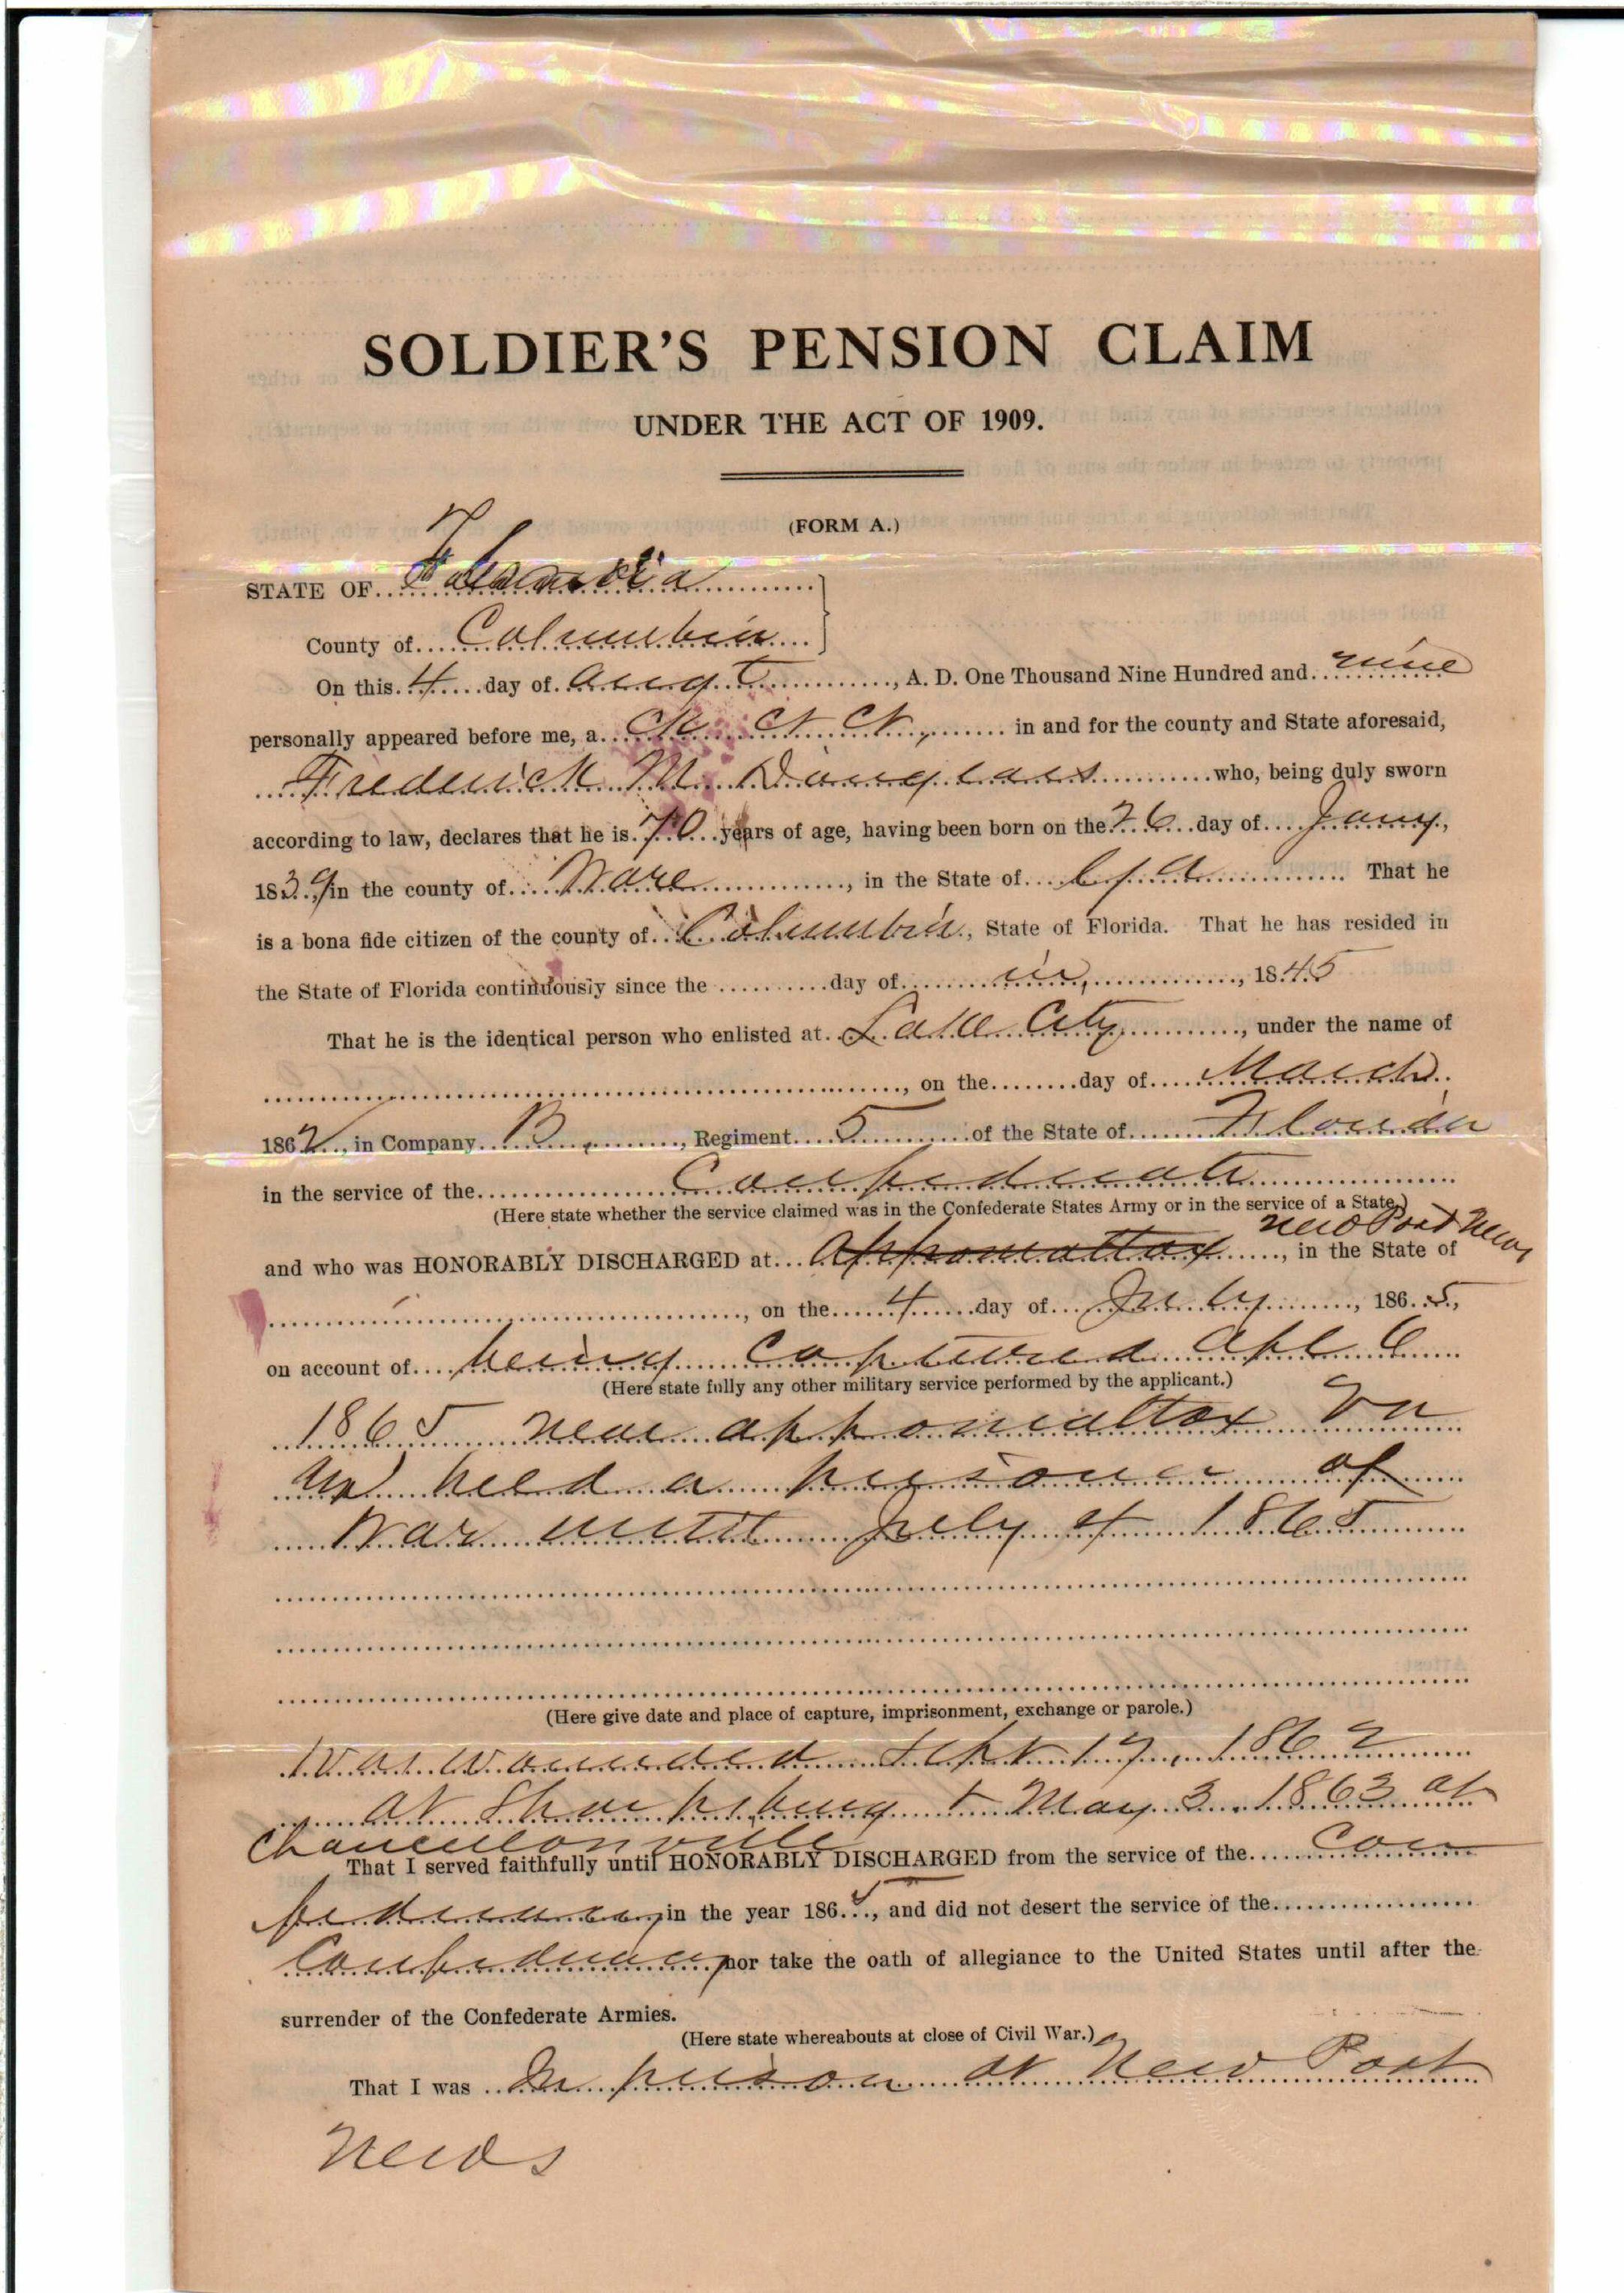 SOLDIER'S PENSION CLAIM
UNDER THE ACT OF 1909.
(FORM A.)
STATE OF Florida
County of Columbia
On this 4 day of Augt, A. D. One Thousand Nine Hundred and nine
personally appeared before me, a in and for the county and State aforesaid,
Frederick M Douglass who, being duly sworn
according to law, declares that he is 70 years of age, having been born on the 26 day of Jany,
1839, in the county of Ware, in the State of Ga That he
is a bona fide citizen of the county of Columbia, State of Florida. That he has resided in
the State of Florida continuously since the day of in, 1845
That he is the identical person who enlisted at Lake City, under the name of
, on the day of March
1862, in Company B, Regiment 5 of the State of Florida
in the service of the Confederate
(Here state whether the service claimed was in the Confederate States Army or in the service of a State.)
New Port News
and who was HONORABLY DISCHARGED at Appomattox, in the State of
, on the 4 day of July, 1865,
on account of being Captured Apl 6
(Here state fully any other military service performed by the applicant.)
1865 near appomattox Va
held a prisoner of
War until July 4 1865
(Here give date and place of capture, imprisonment, exchange or parole.)
Was wounded Sept 17, 1862
at Sharpsburg & May 3. 1863 at
Chancellorsville
That I served faithfully until HONORABLY DISCHARGED from the service of the Con
federacy in the year 1865, and did not desert the service of the
Confederacy nor take the oath of allegiance to the United States until after the
surrender of the Confederate Armies.
(Here state whereabouts at close of Civil War.)
That I was In prison at New Port
News